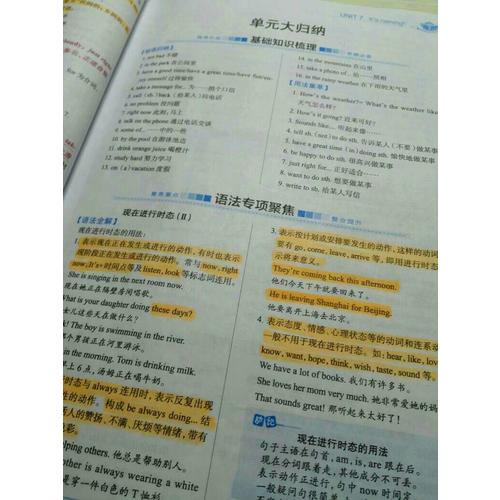 UNIT 7 It's raining!
单元大归纳
基础知识梳理
1. not bad 不错
2. in the park 在公园里
3. have a good time=have a great time=have fun=en-
joy oneself 过得愉快
4. take a message for... 为……捎个口信
5. call (sb.) back (给某人)回电话
6. no problem 没问题
7. right now 此刻,马上
8. talk on the phone 通过电话交谈
9. some of... ……中的一些
10. by the pool 在游泳池边
11. drink orange juice 喝橙汁
12. study hard 努力学习
13. on (a) vacation 度假
14. in the mountains 在山里
15. take a photo of... 给……照相
16. in the rainy weather 在下雨的天气里
【用法集萃】
1. How's the weather?= What's the weather like
天气怎么样?
2. How's it going? 近来可好?
3. Sounds like... 听起来像……
4. tell sb. (not) to do sth. 告诉某人(不要)做某事
5. have a great time (in) doing sth. 愉快地做某事
6. be happy to do sth. 很高兴做某事
7. just right for... 正好适合……
8. want to do sth. 想要做某事
9. write to sb. 给某人写信
语法专项聚焦
整合提升
现在进行时态(Ⅱ)
【语法全解】
现在进行时态的用法:
1. 表示现在正在发生或进行的动作,有时也表示
现阶段正在发生或进行的动作。常与 now, right
now, It's+时间点等及 listen, look 等标志词连用。
She is singing in the next room now.
现在她正在隔壁房间唱歌。
What is your daughter doing these days?
女儿这些天在做什么?
k! The boy is swimming in the river.
个男孩正在河里游泳。
in the morning. Tom is drinking milk.
早上6点,汤姆正在喝牛奶。
时态与 always 连用时,表示反复出现
性的动作。构成 be always doing... 结
话人的赞扬、不满、厌烦等情绪,带有
色彩。
elping others. 他总是帮助别人。
other is always wearing a white
是穿一件白色的T恤衫。
3. 表示按计划或安排要发生的动作,这样的动词
要有 go, come, leave, arrive 等,即用进行时态
示将来意义。
They're coming back this afternoon.
他们今天下午就要回来了。
He is leaving Shanghai for Beijing.
他要离开上海去北京。
4. 表示态度、情感、心理状态等的动词和连系动
一般不用于现在进行时态。如: hear, like, lov
know, want, hope, think, wish, taste, sound 等。
We have a lot of books. 我们有许多书。
She loves her mom very much. 她非常爱她的妈
That sounds great! 那听起来太好了!
巧记
现在进行时态的用法
句子主语在句首, am, is, are 跟在后。
现在分词跟着走,其他成分不可丢。
表示动作正进行,句中 now 时间定
一般疑问句很简单